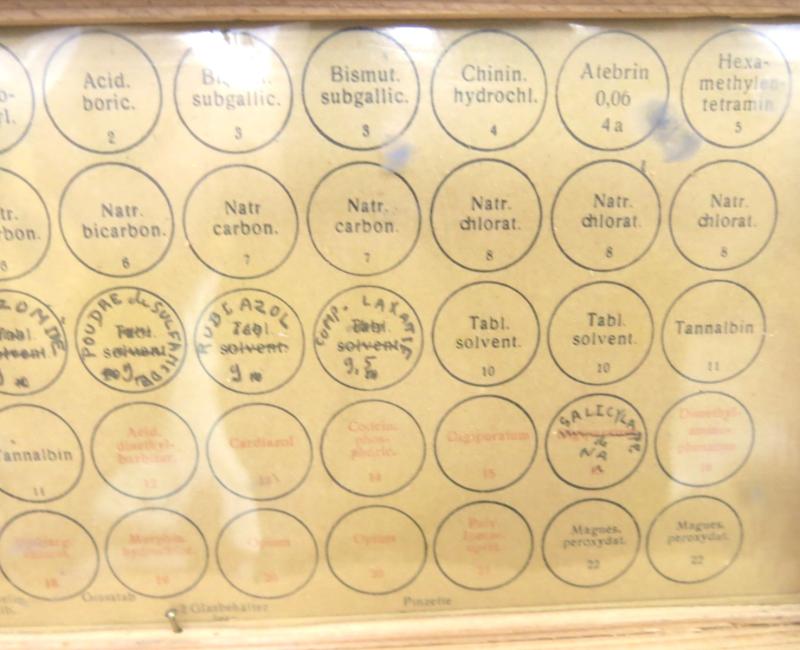 Acid.
boric.
2
subgallic.
3
Bismut.
subgallic.
3
Chinin.
hydrochl.
4
Atebrin
0,06
4a
Hexa-
methylen-
tetramin
5
Natr.
bicarbon.
6
Natr
carbon.
7
Natr.
carbon.
7
Natr.
chlorat.
8
Natr.
chlorat.
8
Natr.
chlorat.
8
POUDRE de SULFAMIDE
Tabl.
solvent.
RUBIAZOL
Tabl.
solvent.
9
COMP. LAXATIF
Tabl.
solvent.
9,5
Tabl.
solvent.
10
Tabl.
solvent.
10
Tannalbin
11
Tannalbin
11
Acid.
diaethyl-
barbitur.
12
Cardiazol
13
Codein.
phos-
phoric.
14
Digipuratum
15
SALICYLATE
de
NA
Dimethyl-
amino-
phenazon
16
18
Morphin.
hydrochlor.
19
Opium
20
Opium
20
Pulv.
Ipecac.
opiat.
21
Magnes.
peroxydat.
22
Magnes.
peroxydat.
22
Glasbehälter
Pinzette